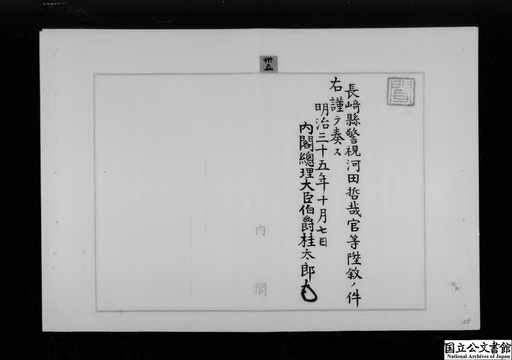 卅五
長崎縣警視河田哲哉官等陞敘ノ件
右謹テ奏ス
明治三十五年十月七日
内閣總理大臣伯爵桂太郎
内閣
国立公文書館
National Archives of Japan